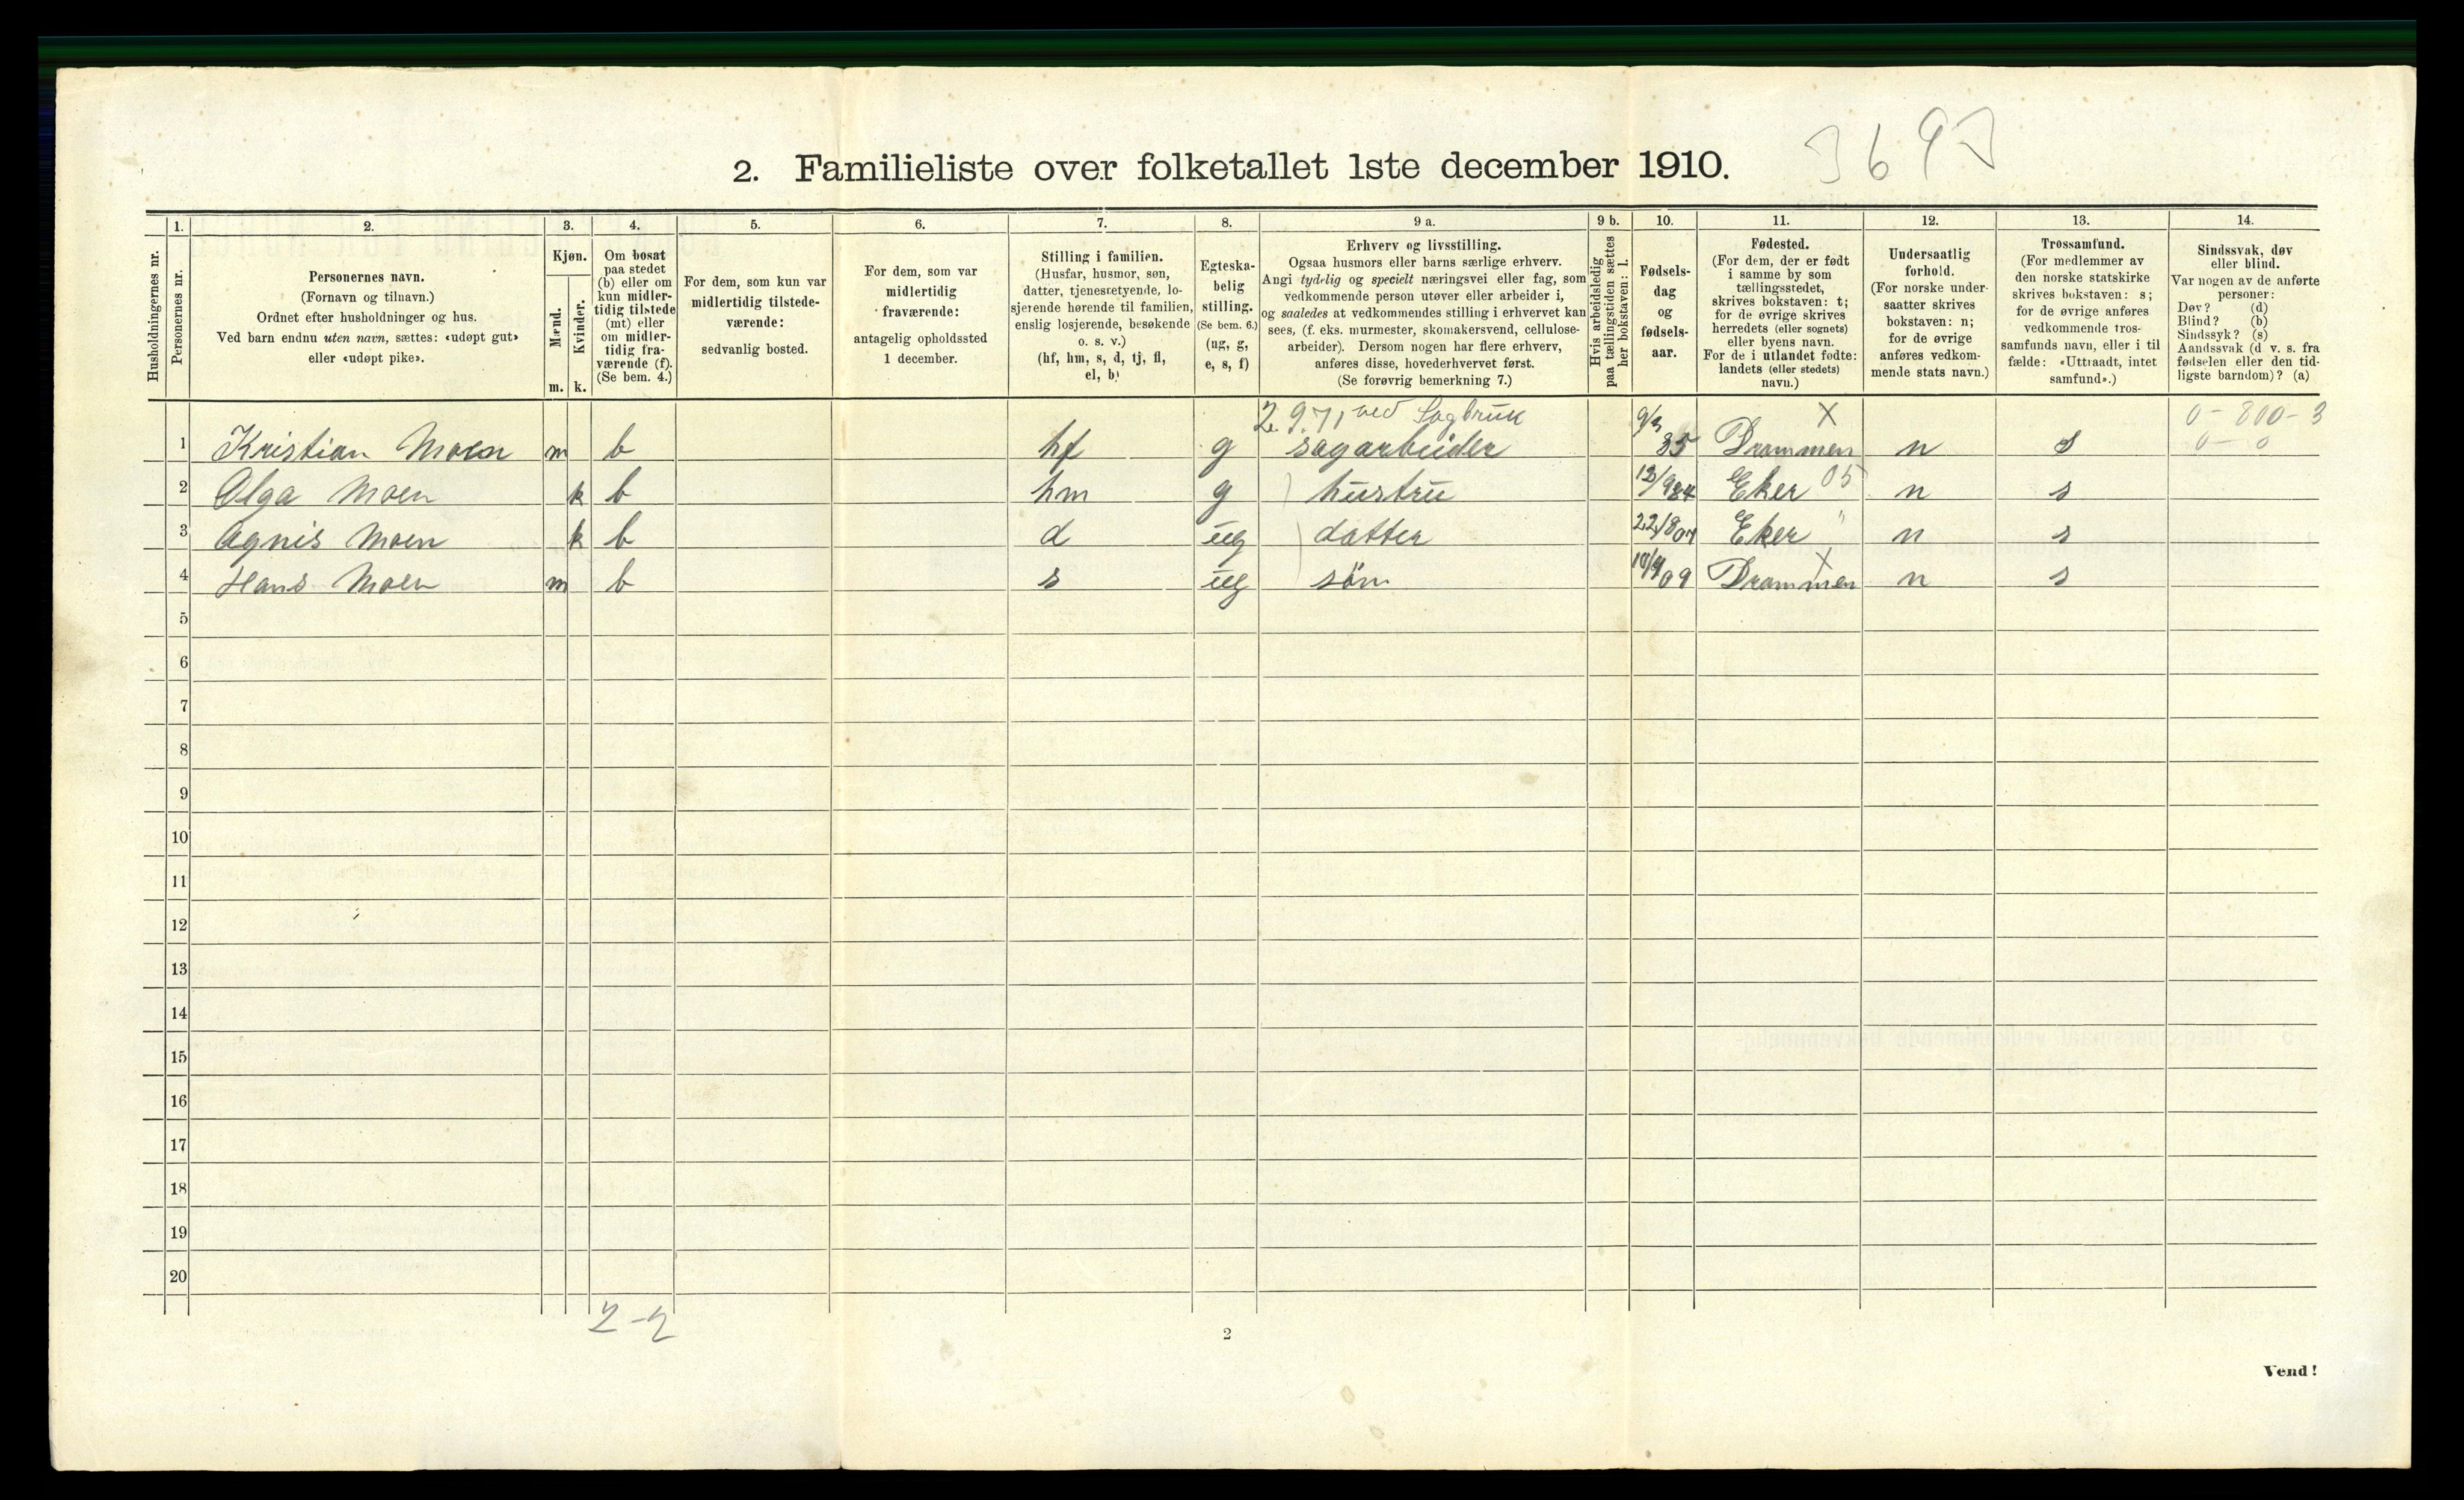 3697
2. Familieliste over folketallet 1ste december 1910.
1. 2. 3. 4. 5. 6. 7. 8. 9 a. 9 b. 10. 11. 12. 13. 14.
Husholdningernes nr.
Personernes nr.
Personernes navn.
(Fornavn og tilnavn.)
Ordnet efter husholdninger og hus.
Ved barn endnu uten navn, sættes: «udøpt gut»
eller «udøpt pike».
Kjøn.
Mænd.
m.
Kvinder.
k.
Om bosat
paa stedet
(b) eller om
kun midler-
tidig tilstede
(mt) eller
om midler-
tidig fra-
værende (f).
(Se bem. 4.)
For dem, som kun var
midlertidig tilstede-
værende:
sedvanlig bosted.
For dem, som var
midlertidig
fraværende:
antagelig opholdssted
1 december.
Stilling i familien.
(Husfar, husmor, søn,
datter, tjenestetyende, lo-
sjerende hørende til familien,
enslig losjerende, besøkende
o. s. v.)
(hf, hm, s, d, tj, fl,
el, b)
Egteska-
belig
stilling.
(Se bem. 6.)
(ug, g,
e, s, f)
Erhverv og livsstilling.
Ogsaa husmors eller barns særlige erhverv.
Angi tydelig og specielt næringsvei eller fag, som
vedkommende person utøver eller arbeider i,
og saaledes at vedkommendes stilling i erhvervet kan
sees, (f. eks. murmester, skomakersvend, cellulose-
arbeider). Dersom nogen har flere erhverv,
anføres disse, hovederhvervet først.
(Se forøvrig bemerkning 7.)
Hvis arbeidsledig
paa tællingstiden sættes
her bokstaven: l.
Fødsels-
dag
og
fødsels-
aar.
Fødested.
(For dem, der er født
i samme by som
tællingsstedet,
skrives bokstaven: t;
for de øvrige skrives
herredets (eller sognets)
eller byens navn.
For de i utlandet fødte:
landets (eller stedets)
navn.)
Undersaatlig
forhold.
(For norske under-
saatter skrives
bokstaven: n;
for de øvrige
anføres vedkom-
mende stats navn.)
Trossamfund.
(For medlemmer av
den norske statskirke
skrives bokstaven: s;
for de øvrige anføres
vedkommende tros-
samfunds navn, eller i til
fælde: «Uttraadt, intet
samfund».)
Sindssvak, døv
eller blind.
Var nogen av de anførte
personer:
Døv? (d)
Blind? (b)
Sindssyk? (s)
Aandssvak (d. v. s. fra
fødselen eller den tid-
ligste barndom)? (a)
2.9.71 ved Sagbruk X 0-800-3
1 Kristian Moen m b hf g sagarbeider 9/3 85 Drammen n s 0-0
2 Olga Moen k b hm g hustru 13/9 84 Eker 05 n s
3 Agnis Moen k b d ug datter 22/8 07 Eker " n s
4 Hans Moen m b s ug søn 10/9 09 Drammen X n s
5
6
7
8
9
10
11
12
13
14
15
16
17
18
19
20
2-2
2
Vend!